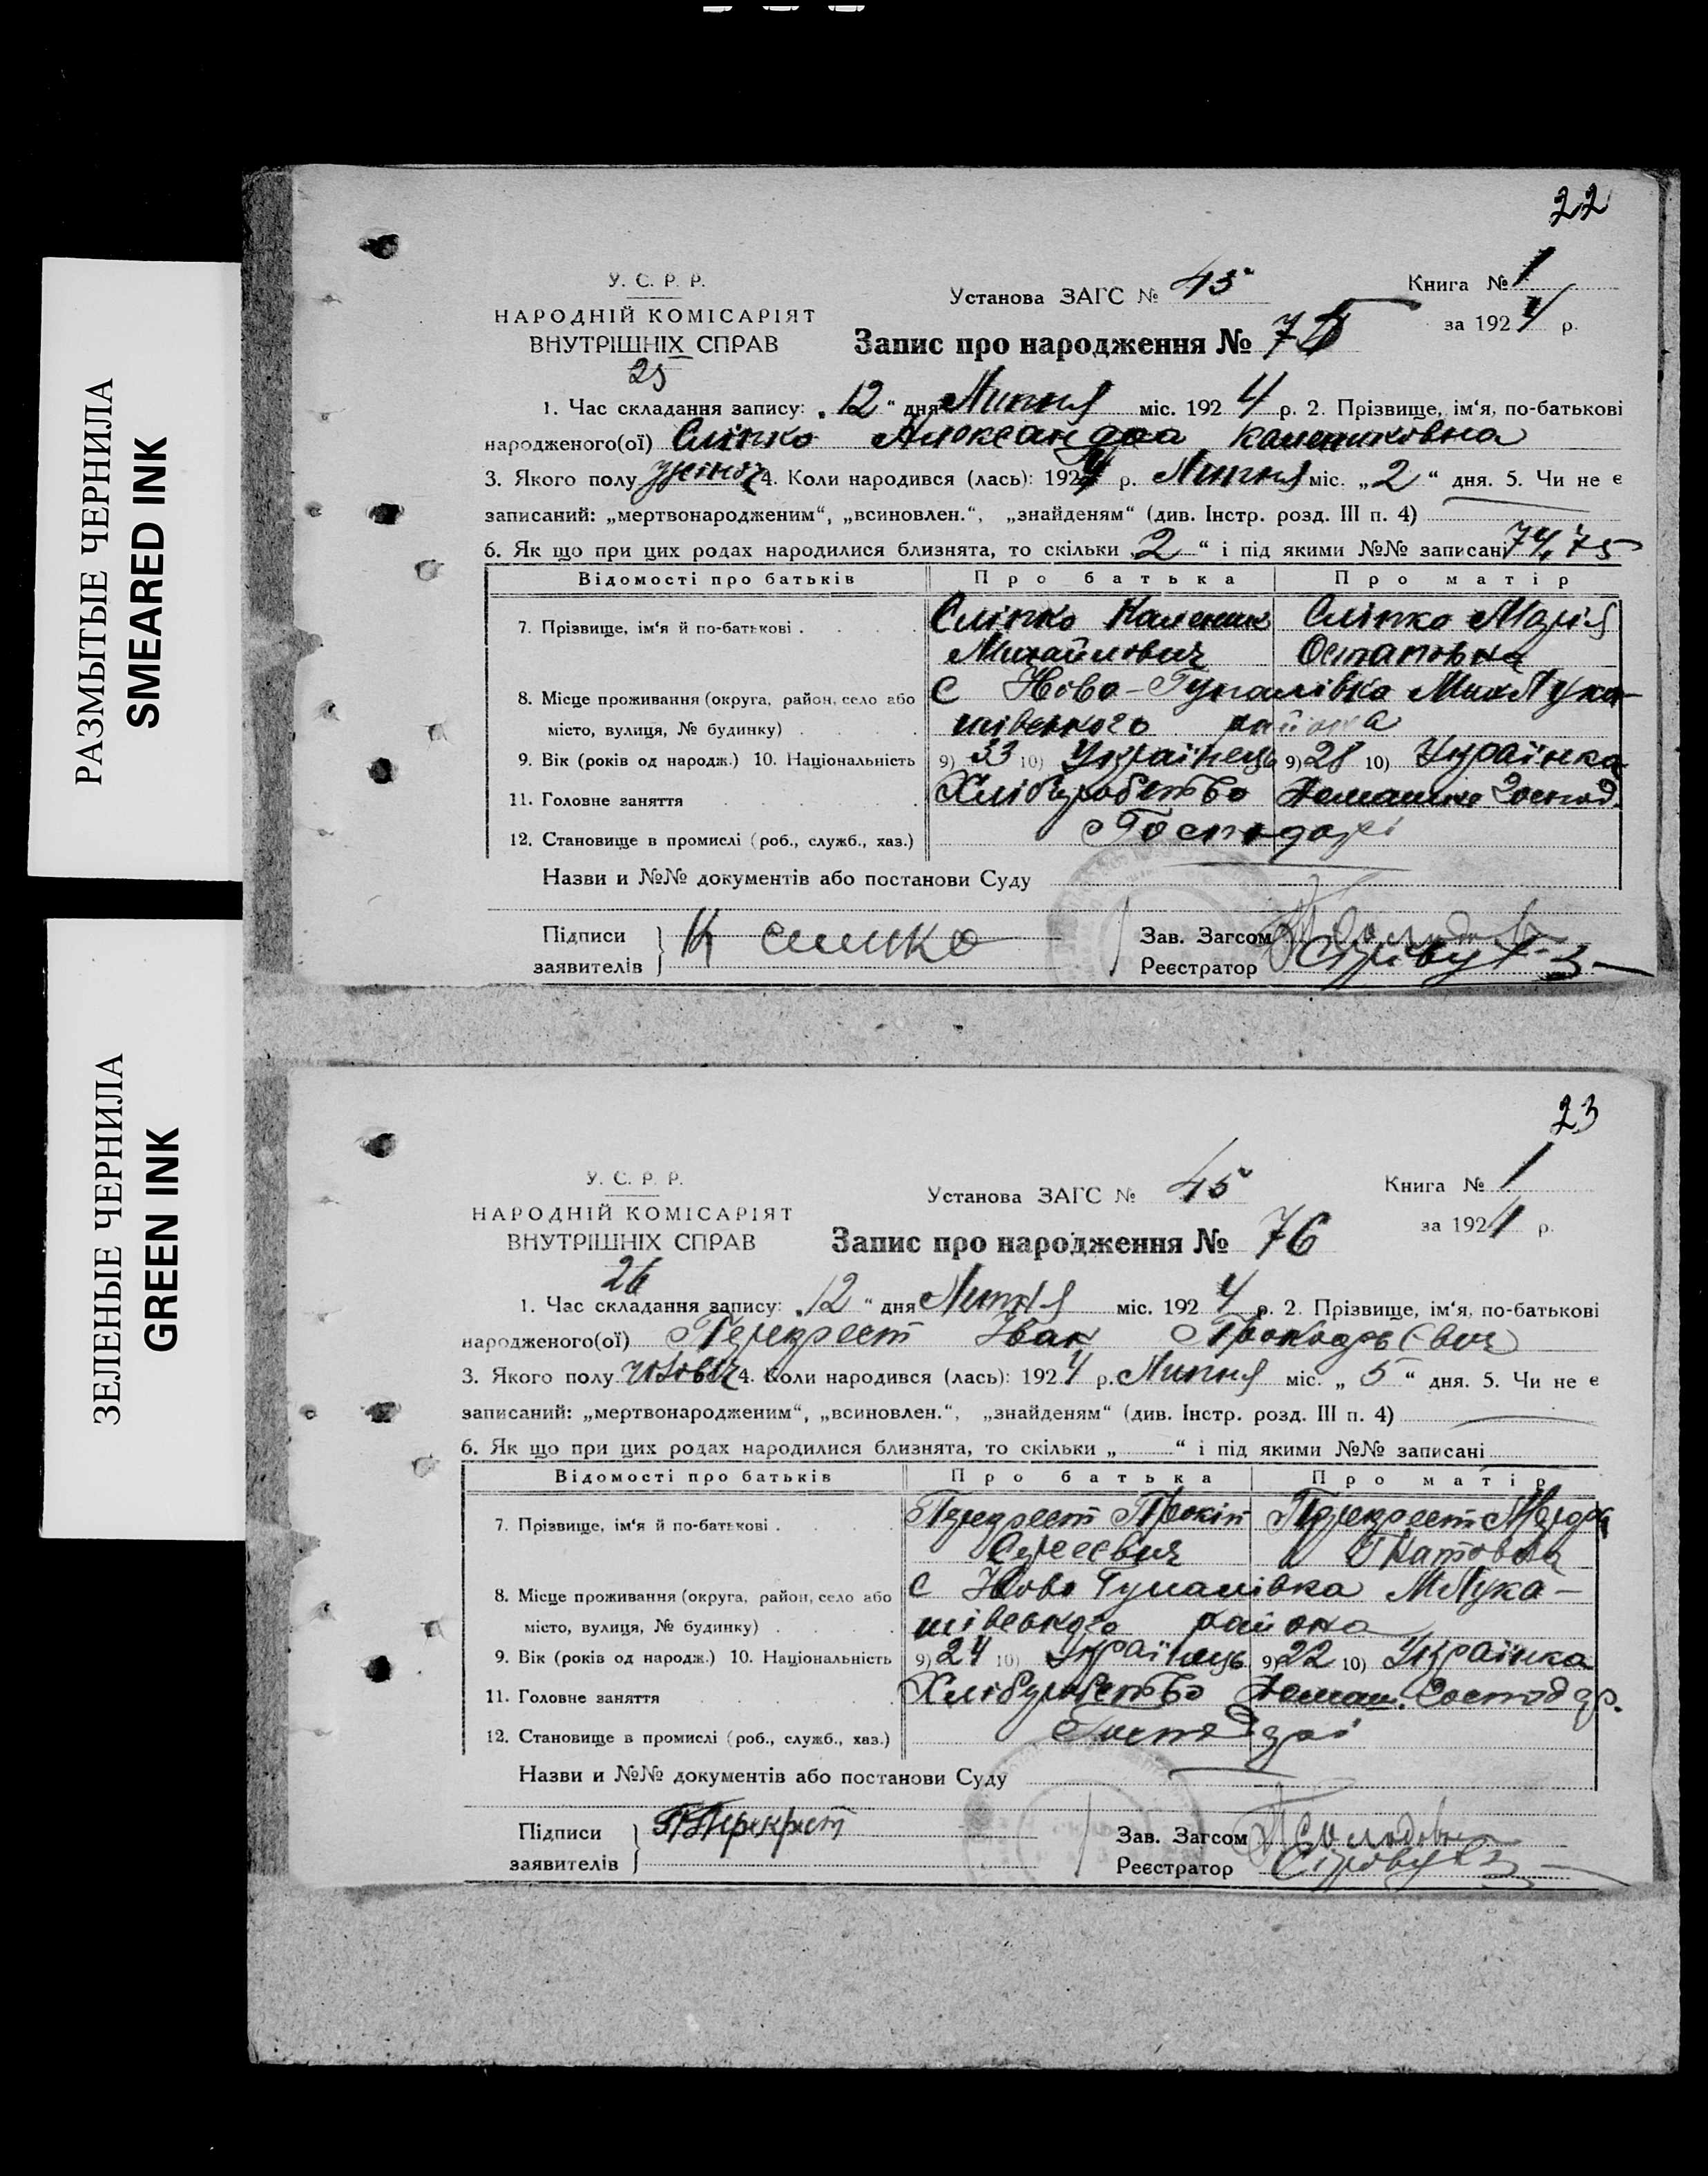 РАЗМЫТЫЕ ЧЕРНИЛА
SMEARED INK
ЗЕЛЕНЫЕ ЧЕРНИЛА
GREEN INK
22
У. С. Р. Р.
НАРОДНІЙ КОМІСАРІЯТ
ВНУТРІШНІХ СПРАВ
25
Установа ЗАГС № 45
Книга № 1
за 1924 р.
Запис про народження № 75
1. Час складання запису: „12“ дня Липня міс. 1924 р. 2. Прізвище, ім‘я, по-батькові
народженого(ої) Сліпко Александра Калениковна
3. Якого полу жіноч 4. Коли народився (лась): 1924 р. Липня міс. „2“ дня. 5. Чи не є
записаний: „мертвонародженим“, „всиновлен.“, „знайденям“ (див. Інстр. розд. III п. 4)
6. Як що при цих родах народилися близнята, то скільки „2“ і під якими №№ записані 74, 75
Відомості про батьків Про батька Про матір
7. Прізвище, ім‘я й по-батькові . . . . Сліпко Каленик Сліпко Марія
Михайлович Остаповна
8. Місце проживання (округа, район, село або С Ново-Гупалівка Мих Лука-
місто, вулиця, № будинку) . . . . шівського района
9. Вік (років од народж.) 10. Національність 9) 33 10) Українець 9) 28 10) Українка
11. Головне заняття . . . . Хліборобство Домашнє Господ.
12. Становище в промислі (роб., служб., хаз.) Господарі
Назви и №№ документів або постанови Суду
Підписи
заявителів
К слипко
Зав. Загсом
Реєстратор
23
У. С. Р. Р.
НАРОДНІЙ КОМІСАРІЯТ
ВНУТРІШНІХ СПРАВ
26
Установа ЗАГС № 45
Книга № 1
за 1924 р.
Запис про народження № 76
1. Час складання запису: „12“ дня Липня міс. 1924 р. 2. Прізвище, ім‘я, по-батькові
народженого(ої) Перекрест Іван
3. Якого полу чоловіч 4. Коли народився (лась): 1924 р. Липня міс. „5“ дня. 5. Чи не є
записаний: „мертвонародженим“, „всиновлен.“, „знайденям“ (див. Інстр. розд. III п. 4)
6. Як що при цих родах народилися близнята, то скільки „ “ і під якими №№ записані
Відомості про батьків Про батька Про матір
7. Прізвище, ім‘я й по-батькові . . . . Перекрест Прокіп Перекрест
Сергеєвич Гнатовна
8. Місце проживання (округа, район, село або С Ново Гупалівка М Лука-
місто, вулиця, № будинку) . . . . шівського района
9. Вік (років од народж.) 10. Національність 9) 24 10) Українець 9) 22 10) Українка
11. Головне заняття . . . . Хліборобство Домаш. Господар.
12. Становище в промислі (роб., служб., хаз.) Господарі
Назви и №№ документів або постанови Суду
Підписи
заявителів
П Перекрест
Зав. Загсом
Реєстратор